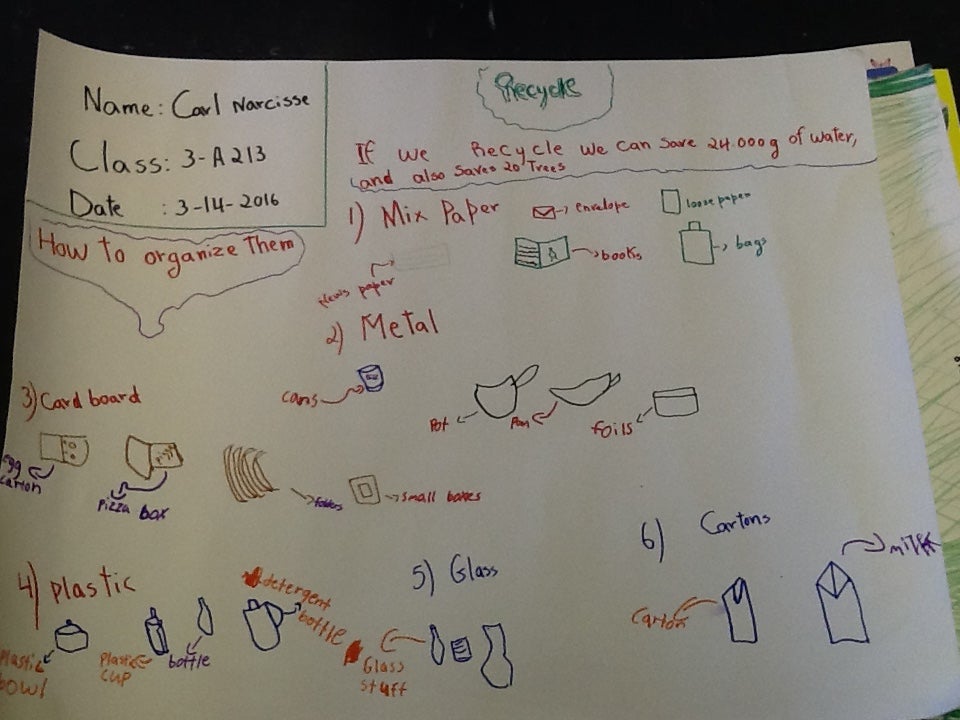 Name: Carl Narcisse
Class: 3-A 213
Date : 3-14-2016
Recycle
If we Recycle we can save 24.000g of water,
and also saves 20 Trees
How to organize them
1) Mix Paper
envelope
loose paper
books
bags
News paper
2) Metal
cans
Pot
Pan
foils
3) Card board
egg
carton
Pizza box
folders
small boxes
4) plastic
Plastic
bowl
Plastic
cup
bottle
detergent
bottle
5) Glass
Glass
stuff
6) Cartons
Carton
milk